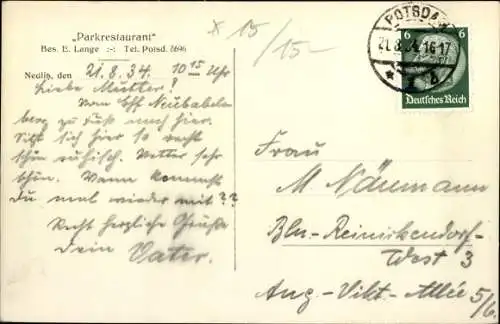 „Parkrestaurant"
Bes. E. Lange :-: Tel. Potsd. 6696
Neulib, den 21.8.34. 10 15 Uhr
Liebe Mutter!
Von Bhf Neubabels-
berg zu Fuß nach hier.
Sitzt sich hier so recht
schön ruhisch. Wetter sehr
schön. Wann kommst
Du mal wieder mit??
Recht herzliche Grüße
Dein Vater.
x 15
/15-
POTSDAM
21.8.34.16-17
* b
6 6
Deutsches Reich
Frau
M Näumann
Bln-Reinickendorf-
West 3
Aug-Vikt-Allée 5/6